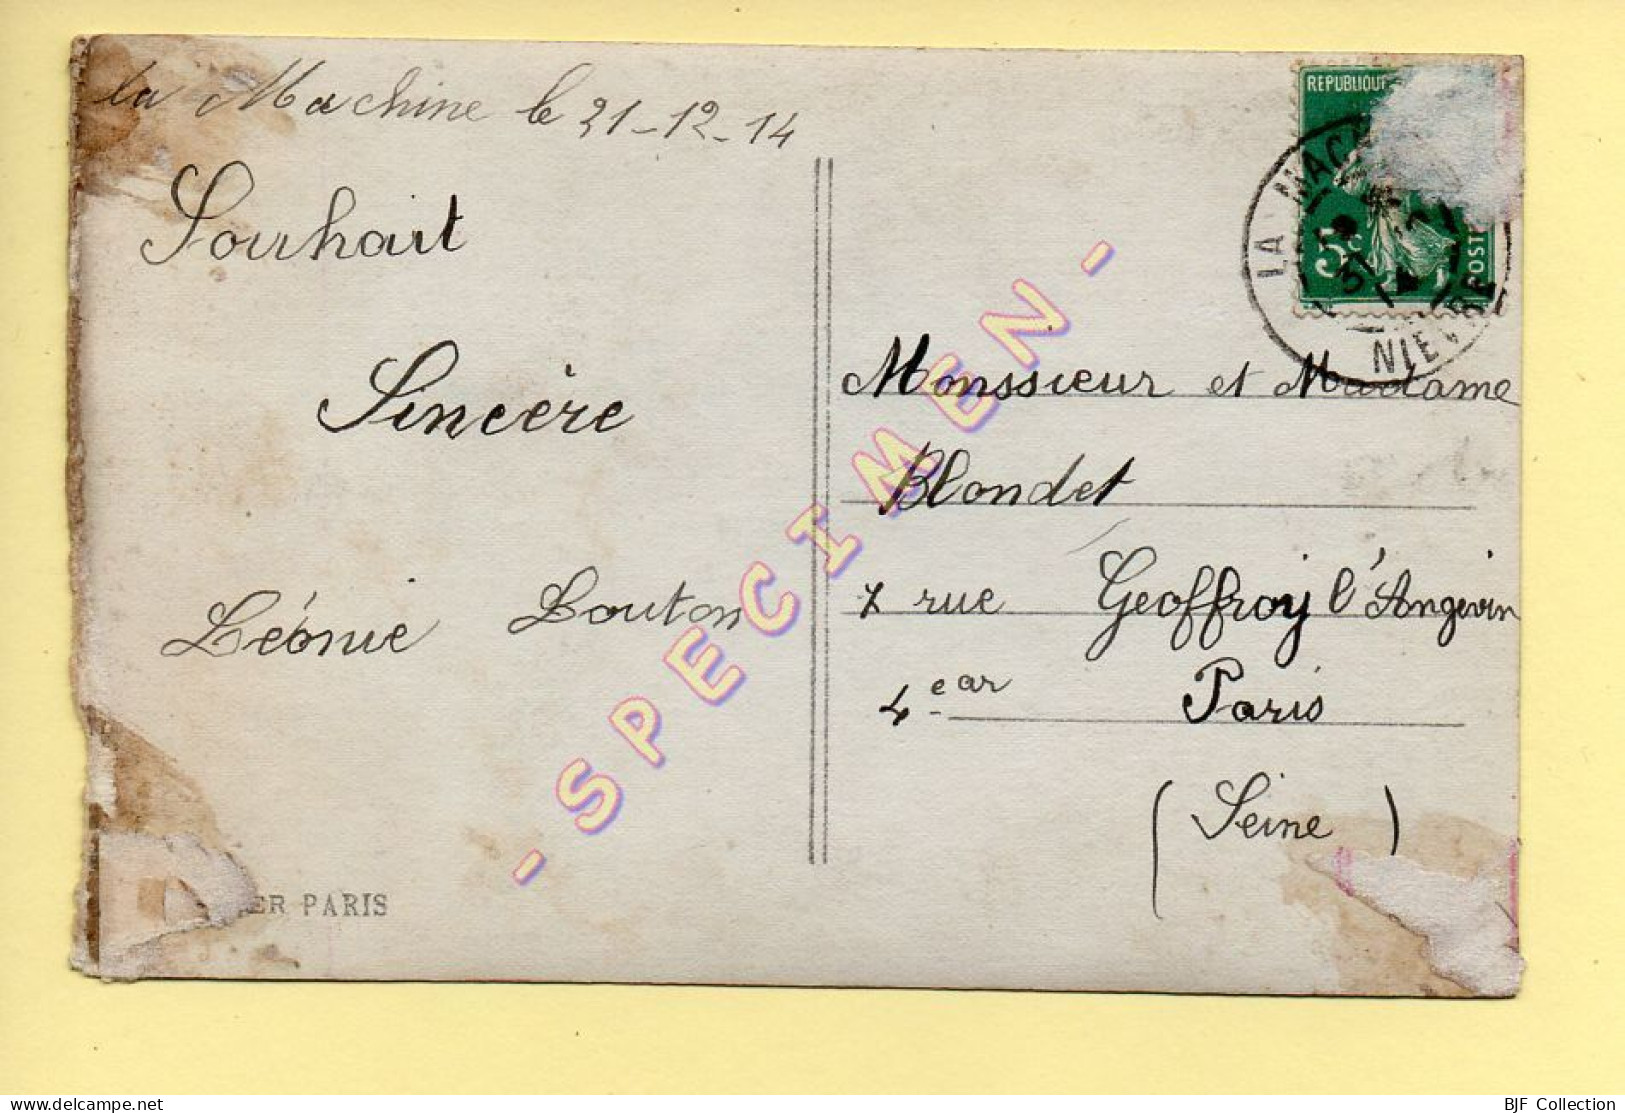 la Machine le 31-12-14
Souhait
Sincère
Léonie Louton
REPUBLIQUE
5c
POSTE
LA MAC
31
14
NIEVRE
Monssieur et Madame
Blondet
7 rue Geoffroy l'Angevin
4e ar Paris
(Seine)
- SPECIMEN -
ER PARIS
delcampe.net
BJF Collection